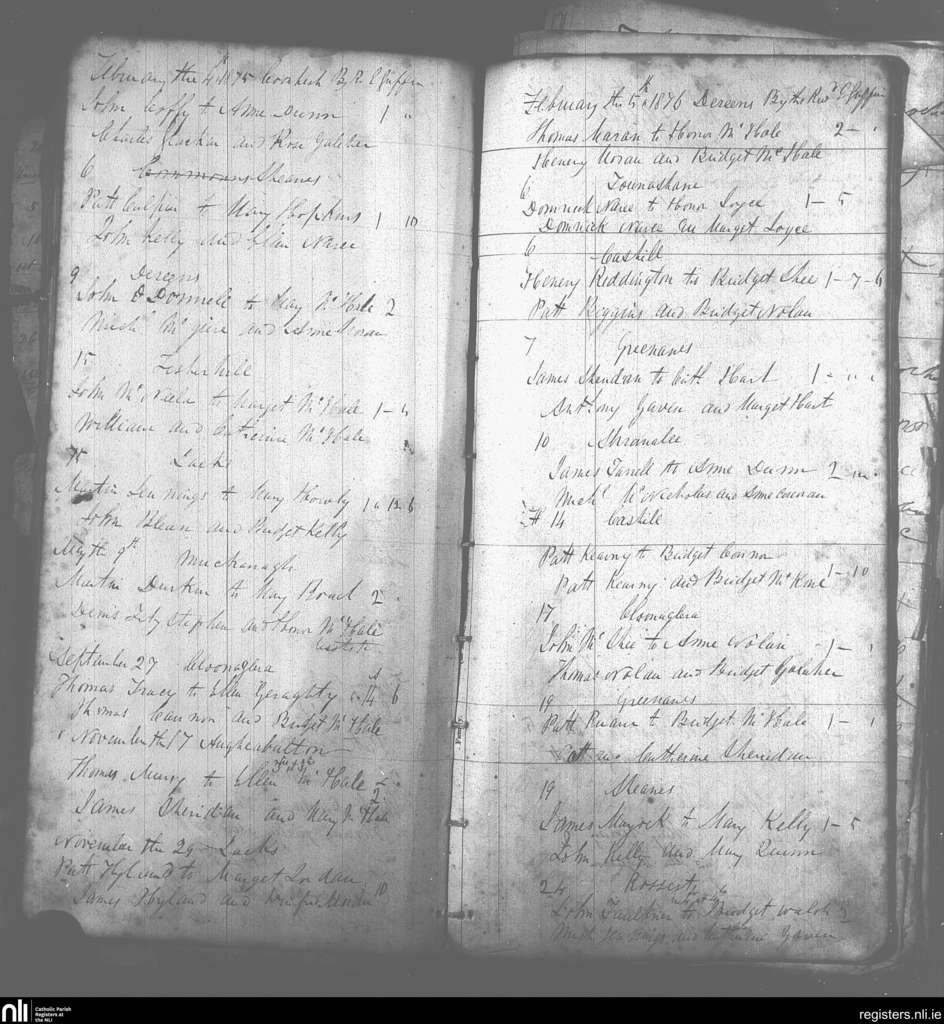 February the 4th 1875 By R. E Griffin
John Coffy to Anne Dunn 1 "
Charles and Rose
6 Commouns Sheanes
Patt to Mary Hopkins 1 10
John Kelly and Ellen Naree
9 Dereens
John O Donnell to Mary Mc Hale 2
Michl Mc and Anne
15
John Mc to Marget Mc Hale 1 - "
William and Catherine Mc Hale
15 Lacks
Martin Jennings to Mary 1 " 12 6
John and Bridget Kelly
9th Muckanagh
Martin Durkin to Mary 2
Denis Stephen and Honor Mc Hale
September 27 Cloonaglera
Thomas Tracy to Ellen Geraghty " 14 6
Thomas Cannon and Bridget Mc Hale
November th 17 Aughabulton
Thomas to Ellen Mc Hale
James Sheridan and Mary Mc Hale
November the 29 Lacks
Patt Hyland to Marget Jordan
James Hyland and 10
February the 5th 1876 Dereens By the Revd E Griffin
Thomas Maran to Honor Mc Hale 2 -
Henery Horan and Bridget Mc Hale
6 Townashane
Domnick Naree to Honor Joyce 1 - 5
Domnick Naree Marget Joyce
6 Cashill
Henery Reddington to Bridget Shee 1 - 7 - 6
Patt Biggins and Bridget Nolan
7 Greenanes
James Sheridan to Cath Hart 1 - " "
Anthony Gaven and Marget Hart
10 Shranalee
James Farrell to Anne Dunn 2
Michl Mc Nicholas and Anne
14 Cashill
Patt Kearny to Bridget
Patt Kearny and Bridget Mc 1 - 10
17 Cloonaglera
John Mc Shee to Anne Nolan 1 -
Thomas Nolan and Bridget
19 Greenanes
Patt Ruane to Bridget Mc Hale 1 -
Patt and Catherine Sheridan
19 Sheanes
James Mayock to Mary Kelly 1 - 5
John Kelly and Mary Quinn
24
John Faulkner to Bridget Walsh
Jennings and Catherine Gaven
nli
Catholic Parish
Registers at
the NLI
registers.nli.ie